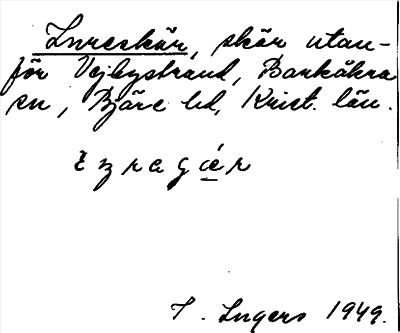 Lureskär, skär utan-
för Vejbystrand, Barkåkra
sn, Bjäre hd, Krist. län.
I. Ingers 1949.